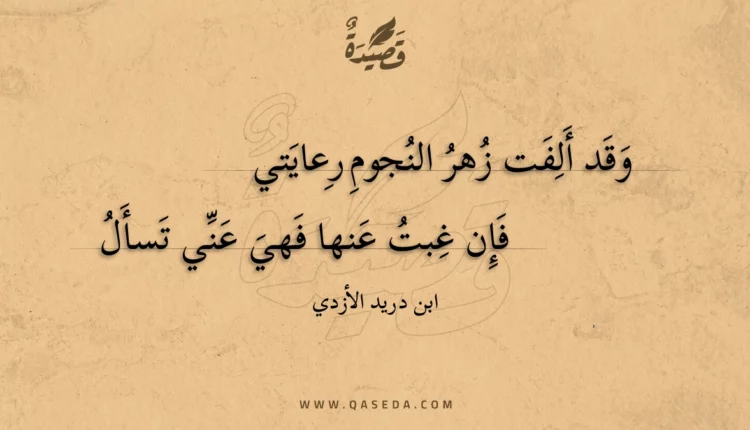 قَصِيْدَةٌ
وَقَد أَلِفَت زُهرُ النُجومِ رِعايَتي
فَإِن غِبتُ عَنها فَهيَ عَنِّي تَسأَلُ
ابن دريد الأزدي
WWW.QASEDA.COM